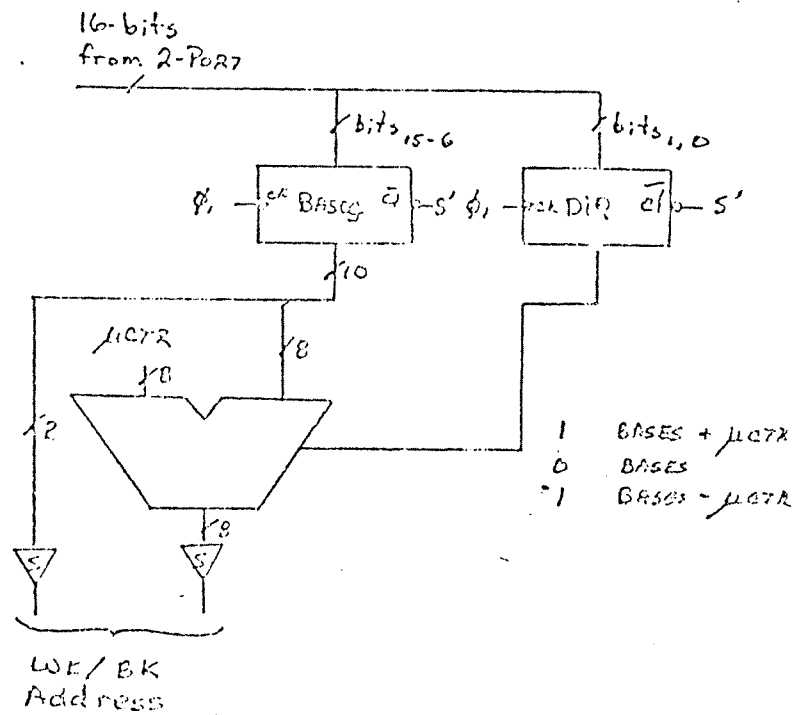 16-bits
from 2-PORT
bits 15-6
bits 1,0
φ1
ck BASES cl
S'
φ1
ck DIR cl
S'
10
μCTR
8
8
2
1 BASES + μCTR
0 BASES
-1 BASES - μCTR
8
S
S
WK/BK
Address